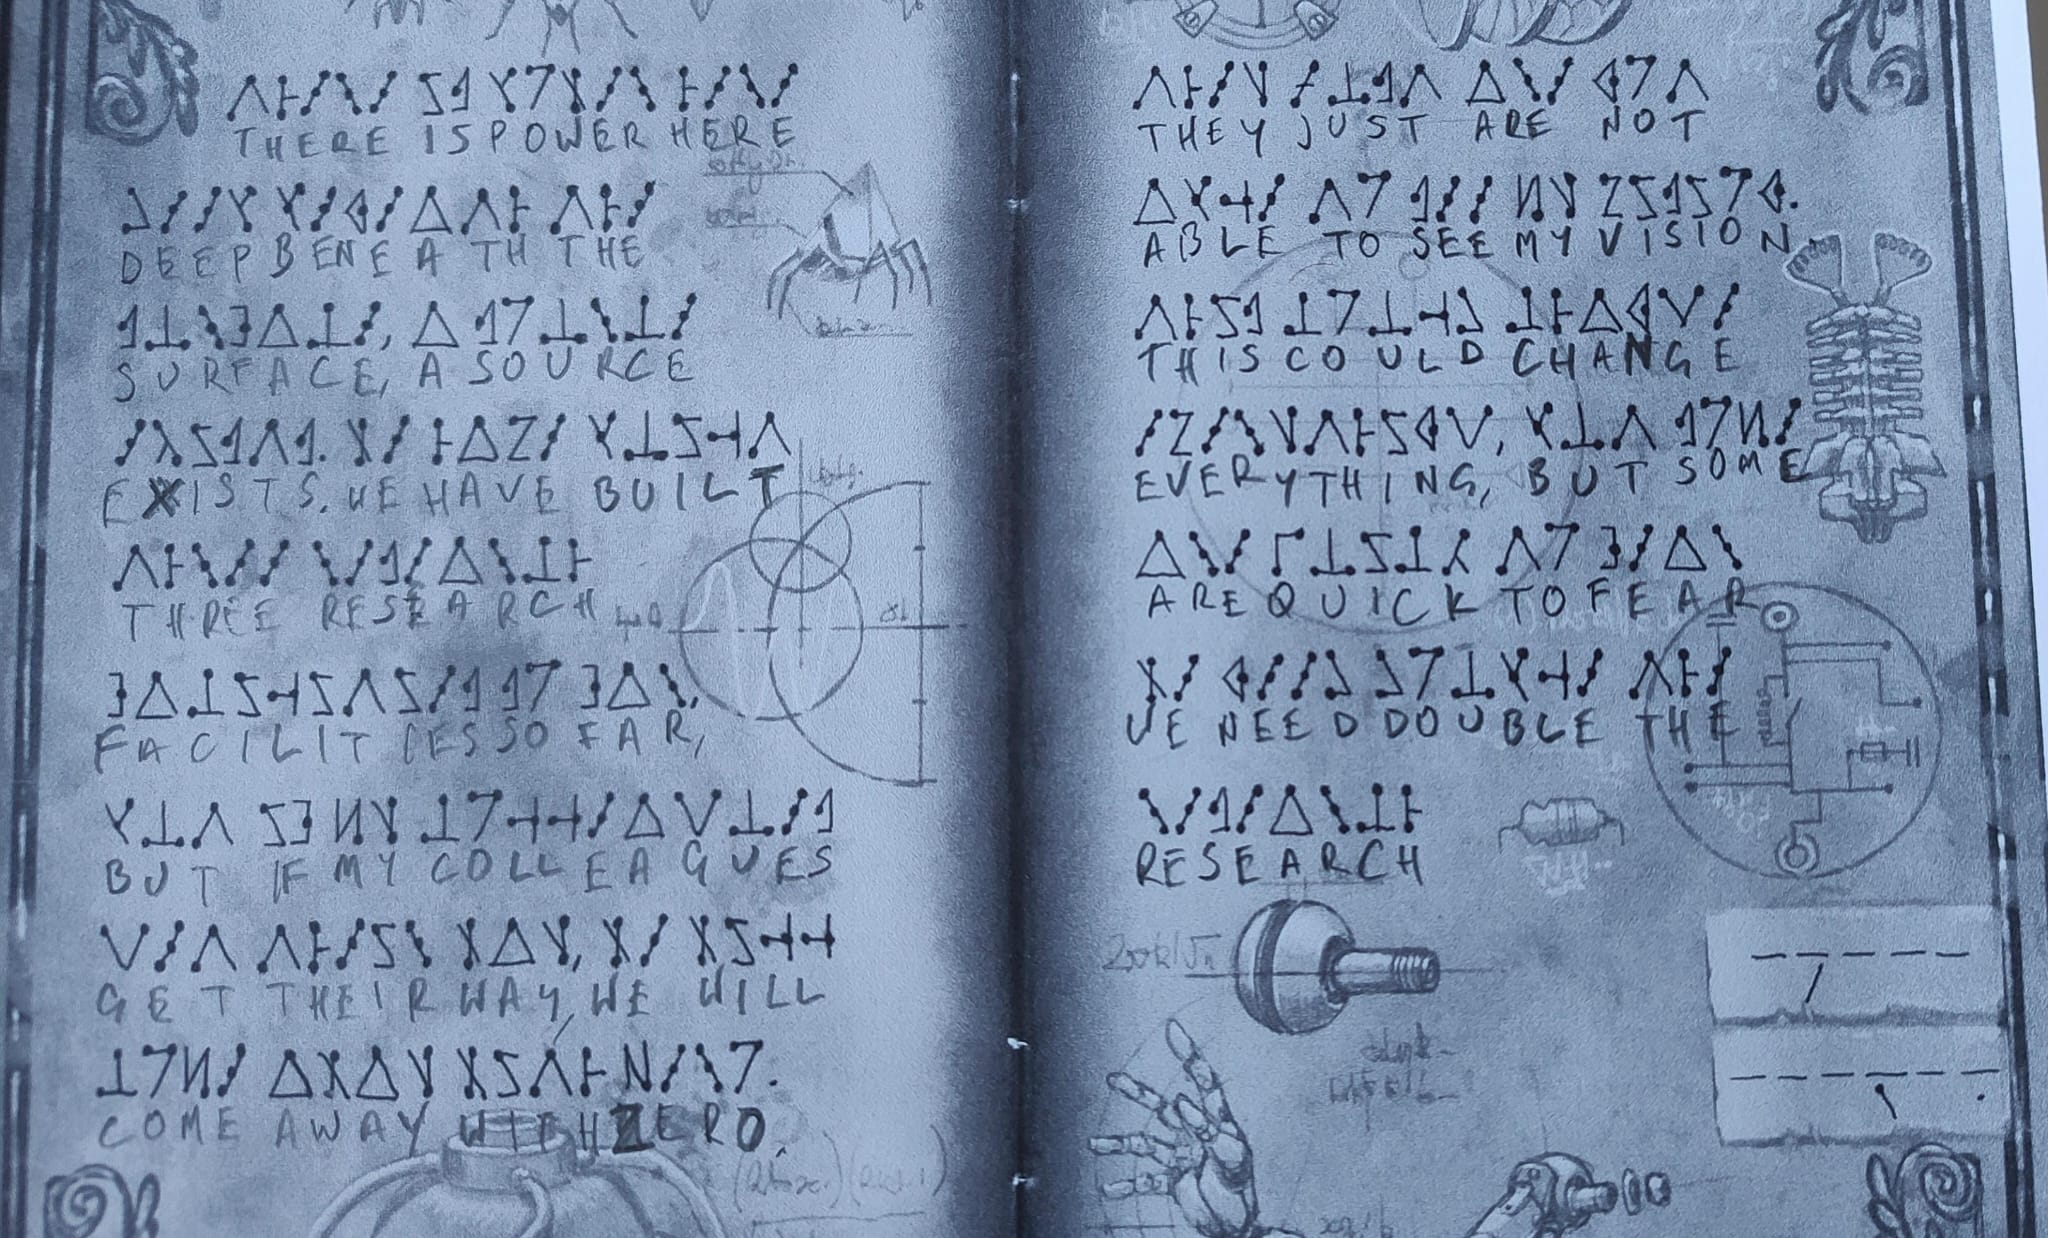 THERE IS POWER HERE
DEEP BENEATH THE
SURFACE, A SOURCE
EXISTS. WE HAVE BUILT
THREE RESEARCH
FACILITIES SO FAR,
BUT IF MY COLLEAGUES
GET THEIR WAY, WE WILL
COME AWAY WITH ZERO.
THEY JUST ARE NOT
ABLE TO SEE MY VISION.
THIS COULD CHANGE
EVERYTHING, BUT SOME
ARE QUICK TO FEAR
WE NEED DOUBLE THE
RESEARCH